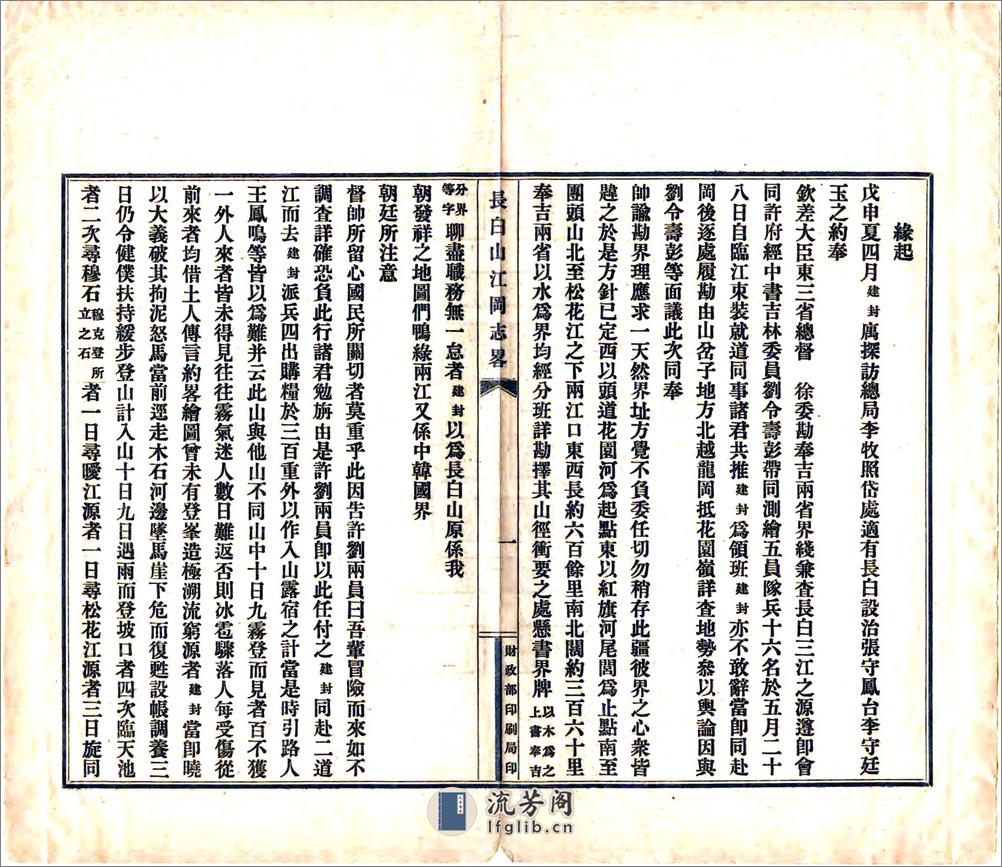 緣起
戊申夏四月建封膺探訪總局李牧照岱處適有長白設治張守鳳台李守廷
玉之約奉
欽差大臣東三省總督　徐委勘奉吉兩省界綫兼查長白三江之源遵即會
同許府經中書吉林委員劉令壽彭帶同測繪五員隊兵十六名於五月二十
八日自臨江束裝就道同事諸君共推建封爲領班建封亦不敢辭當即同赴
岡後逐處履勘由山岔子地方北越龍岡抵花園嶺詳查地勢參以輿論因與
劉令壽彭等面議此次同奉
帥諭勘界理應求一天然界址方覺不負委任切勿稍存此疆彼界之心衆皆
韙之於是方針已定西以頭道花園河爲起點東以紅旗河尾閭爲止點南至
團頭山北至松花江之下兩江口東西長約六百餘里南北闊約三百六十里
奉吉兩省以水爲界均經分班詳勘擇其山徑衝要之處懸書界牌以木爲之上書奉吉
長白山江岡志畧
一
財政部印刷局印
分界等字聊盡職務無一怠者建封以爲長白山原係我
朝發祥之地圖們鴨綠兩江又係中韓國界
朝廷所注意
督帥所留心國民所關切者莫重乎此因告許劉兩員曰吾輩冒險而來如不
調查詳確恐負此行諸君勉旃由是許劉兩員即以此任付之建封同赴二道
江而去建封派兵四出購糧於三百重外以作入山露宿之計當是時引路人
王鳳鳴等皆以爲難并云此山與他山不同山中十日九霧登而見者百不獲
一外人來者皆未得見往往霧氣迷人數日難返否則冰雹驟落人每受傷從
前來者均借土人傳言約畧繪圖曾未有登峯造極溯流窮源者建封當即曉
以大義破其拘泥怒馬當前逕走木石河邊墜馬崖下危而復甦設帳調養三
日仍令健僕扶持緩步登山計入山十日九日遇雨而登坡口者四次臨天池
者二次尋穆石穆克登所立之石者一日尋曖江源者一日尋松花江源者三日旋同
流芳阁
lfglib.cn